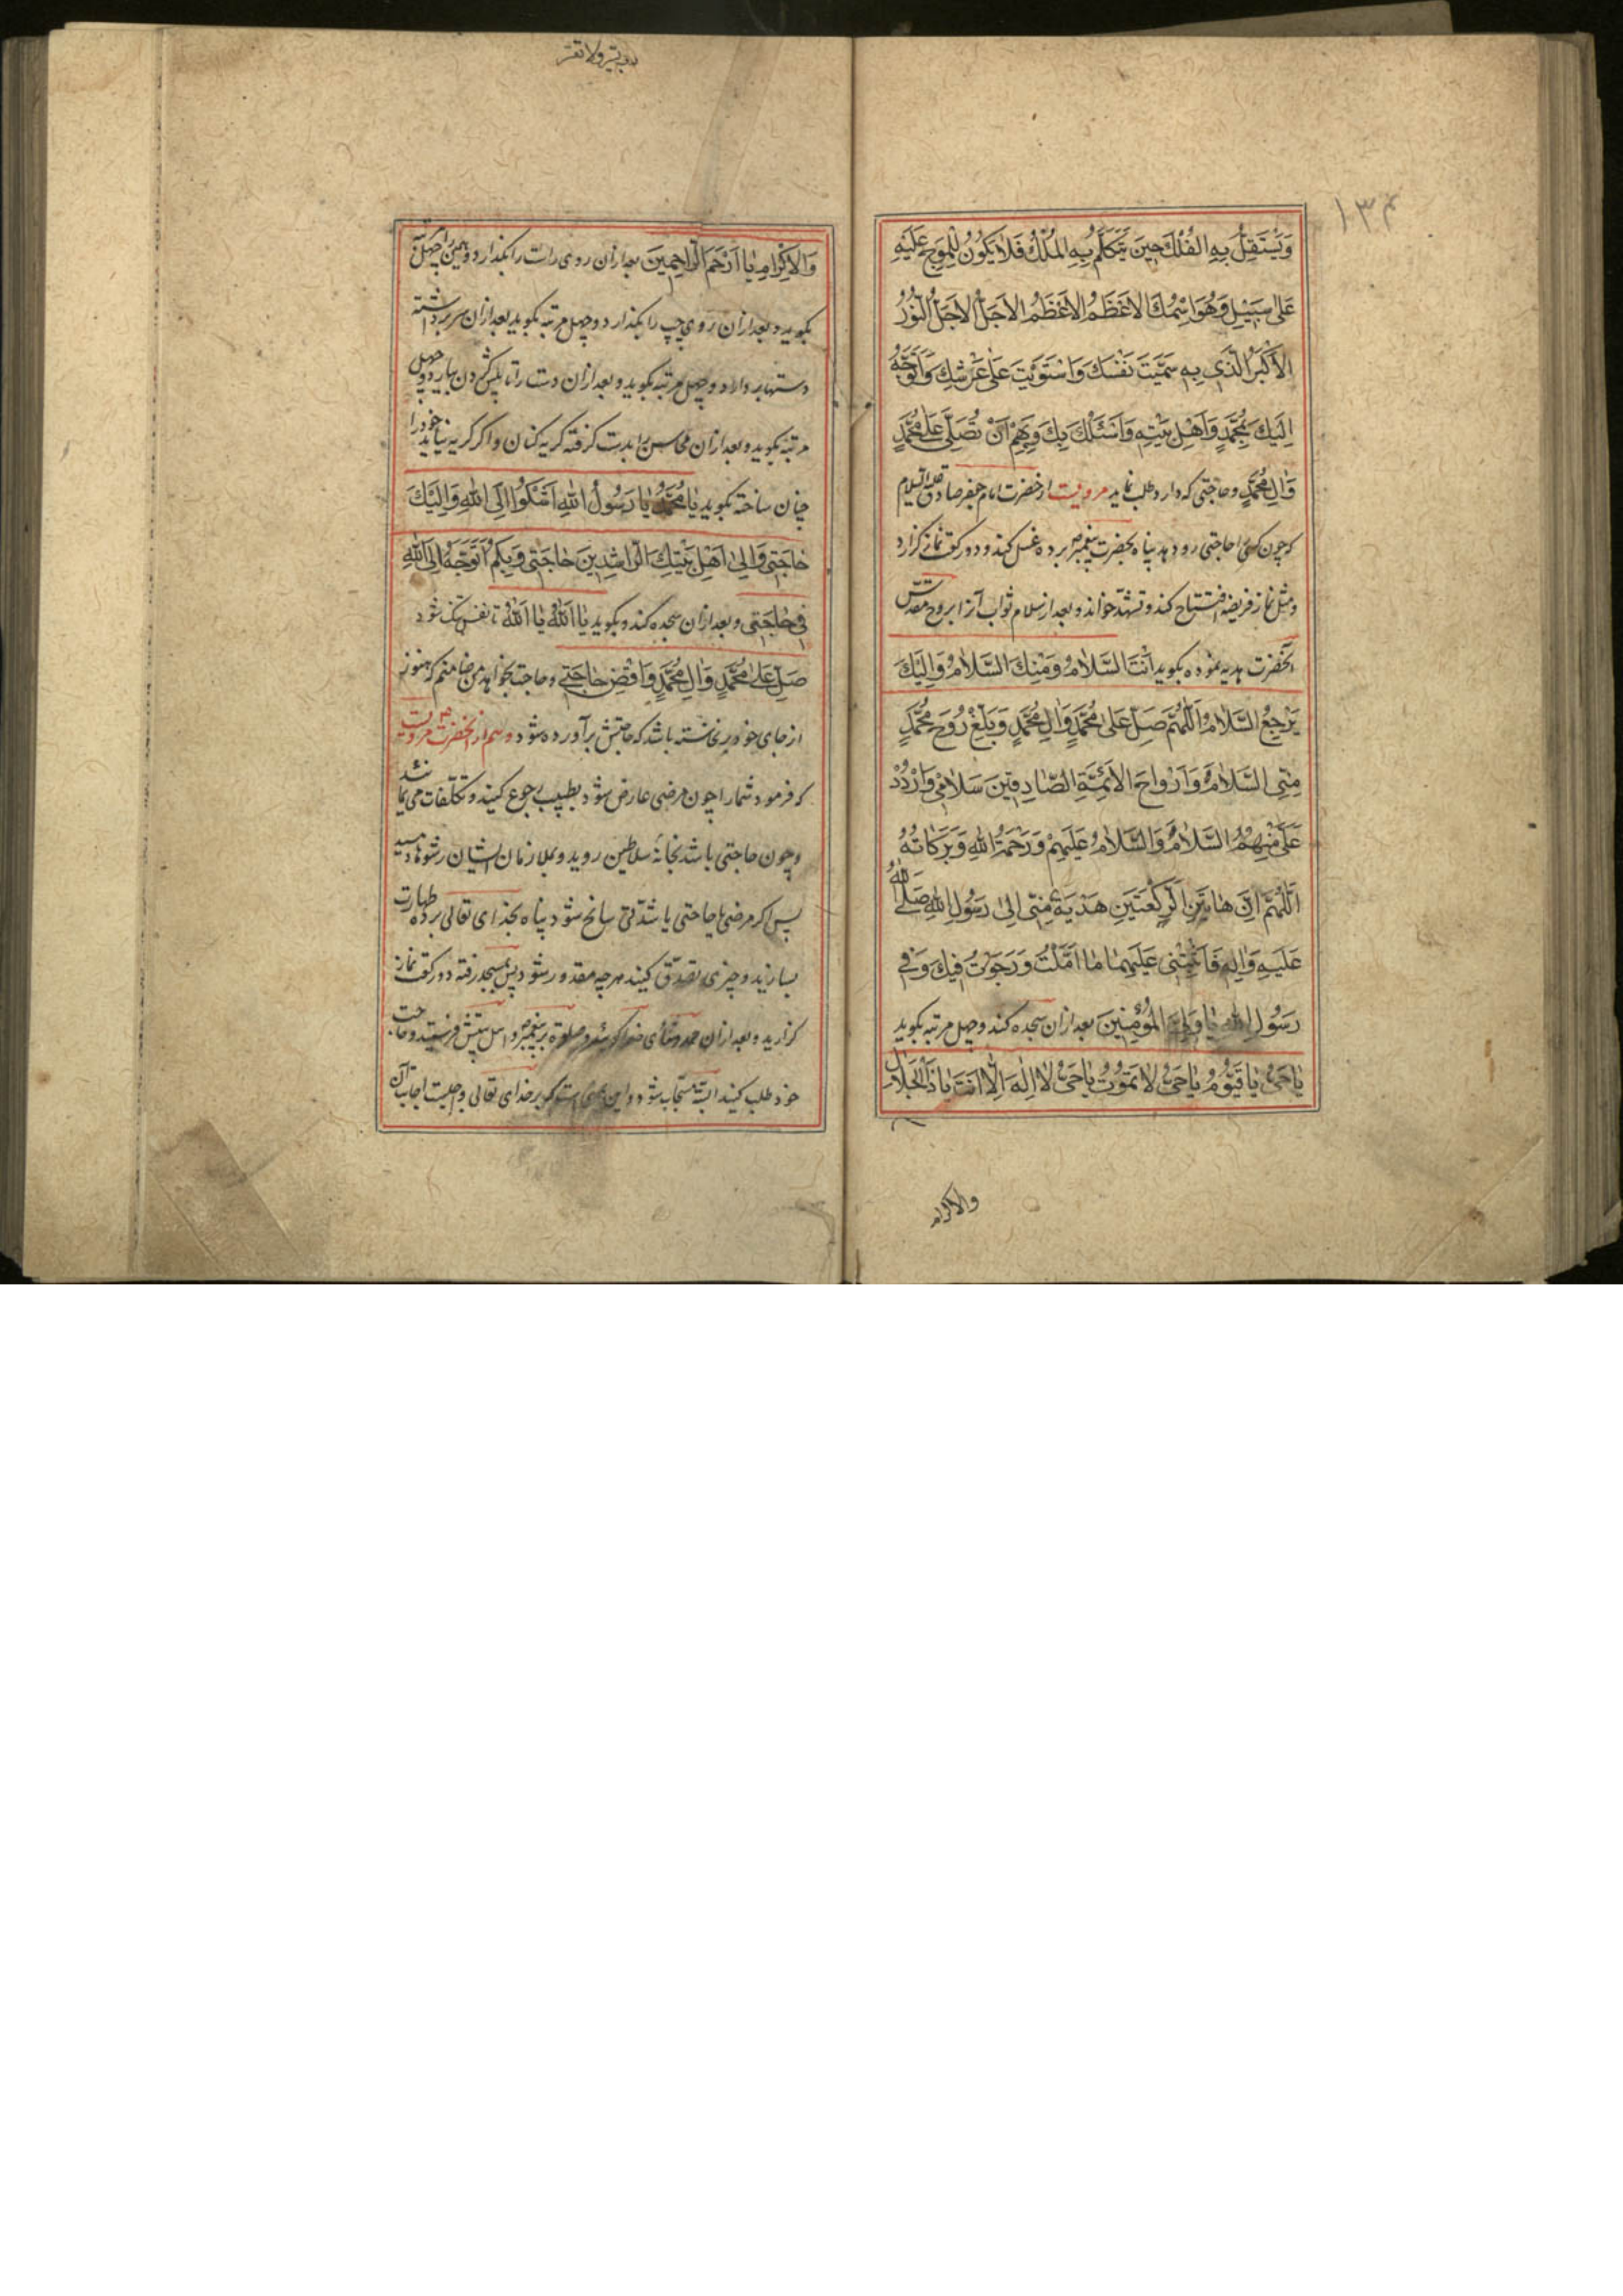 ۱۳۴
وَيَسْتَقِلُّ بِهِ الفُلْكَ حِينَ يَتَكَلَّمُ بِهِ المَلَكُ فَلَا يَكُونُ لِلْمَوْجِ عَلَيْهِ
عَلَى سَبِيْلِ وَهُوَ اسْمُكَ الاَعْظَمُ الاَعْظَمُ الاَجَلُّ الاَجَلُّ النُّوْرُ
الاَكْبَرُ الَّذِي بِهِ سَمَّيْتَ نَفْسَكَ وَاسْتَوَيْتَ عَلَى عَرْشِكَ وَاَتَوَجَّهُ
اِلَيْكَ بِمُحَمَّدٍ وَاَهْلِ بَيْتِهِ وَاَسْئَلُكَ بِكَ وَبِهِمْ اَنْ تُصَلِّيَ عَلَى مُحَمَّدٍ
وَالِ مُحَمَّدٍ و حاجتی که دارد طلب نماید مرویست از حضرت امام جعفر صادق علیه السلام
که چون کسی را حاجتی رو دهد پناه بحضرت پیغمبر برده غسل کند و دو رکعت نماز گزارد
و مثل نماز فریضه افتتاح کند و تشهد خواند و بعد از سلام ثواب آنرا بروح مقدس
آنحضرت هدیه نموده بگوید اَنْتَ السَّلَامُ وَمِنْكَ السَّلَامُ وَاِلَيْكَ
يَرْجِعُ السَّلَامُ اَللّٰهُمَّ صَلِّ عَلَى مُحَمَّدٍ وَالِ مُحَمَّدٍ وَبَلِّغْ رُوْحَ مُحَمَّدٍ
مِنِّى السَّلَامَ وَاَرْوَاحَ الاَئِمَّةِ الصَّادِقِينَ سَلَامِى وَارْدُدْ
عَلَيَّ مِنْهُمُ السَّلَامَ وَالسَّلَامُ عَلَيْهِمْ وَرَحْمَةُ اللّٰهِ وَبَرَكَاتُهُ
اَللّٰهُمَّ اِنَّ هَاتَيْنِ الرَّكْعَتَيْنِ هَدِيَةٌ مِنِّى اِلَى رَسُوْلِ اللّٰهِ صَلَّى اللّٰهُ
عَلَيْهِ وَالِهِ فَاَثِبْنِى عَلَيْهِمَا مَا اَمَّلْتُ وَرَجَوْتُ فِيْكَ وَفِى
رَسُوْلِ اللّٰهِ يَا وَلِىَّ المُؤْمِنِينَ بعد از آن سجده کند و چهل مرتبه بگوید
يَا حَىُّ يَا قَيُّوْمُ يَا حَىُّ لَا يَمُوْتُ يَا حَىُّ لَا اِلٰهَ اِلَّا اَنْتَ يَا ذَا الْجَلَالِ
والاکرام
وَالاِكْرَامِ يَا اَرْحَمَ الرَّاحِمِينَ بعد از آن روی راست را بگذارد و همین را چهل
بگوید و بعد از آن روی چپ را بگذارد و چهل مرتبه بگوید بعد از آن سر برداشته
دستها بردارد و چهل مرتبه بگوید و بعد از آن دست را تا پس گردن بیارد و چهل
مرتبه بگوید و بعد از آن محاسن را بدست گرفته گریه کنان و اگر گریه نیاید خود را
چنان ساخته بگوید يَا مُحَمَّدُ يَا رَسُوْلَ اللّٰهِ اَشْكُوْا اِلَى اللّٰهِ وَاِلَيْكَ
حَاجَتِى وَاِلَى اَهْلِ بَيْتِكَ الرَّاشِدِينَ حَاجَتِى وَبِكُمْ اَتَوَجَّهُ اِلَى اللّٰهِ
فِى حَاجَتِى و بعد از آن سجده کند و بگوید يَا اَللّٰهُ يَا اَللّٰهُ تا نفس تنگ شود
صَلِّ عَلَى مُحَمَّدٍ وَالِ مُحَمَّدٍ وَاقْضِ حَاجَتِى و حاجت بخواهد من ضامنم که هنوز
از جای خود برنخاسته باشد که حاجتش برآورده شود و هم از آنحضرت مرویست
که فرمود شما را چون مرضی عارض شود بطبیب رجوع کنید و تکلفات می نمائید
و چون حاجتی باشد بخانهٔ سلاطین روید و بملازمان ایشان رشوها دهید
پس اگر مرضی یا حاجتی یا شدتی سانح شود پناه بخدای تعالی برده طهارت
بسازید و چیزی تصدق کنید هر چه مقدور شود پس بمسجد رفته دو رکعت نماز
گزارید و بعد از آن حمد و ثنای خدا گوئید و صلوة بر پیغمبر و اهل بیتش فرستید و حاجت
خود طلب کنید البته مستجاب شود و این بر خدای تعالی واجبست اجابت آن